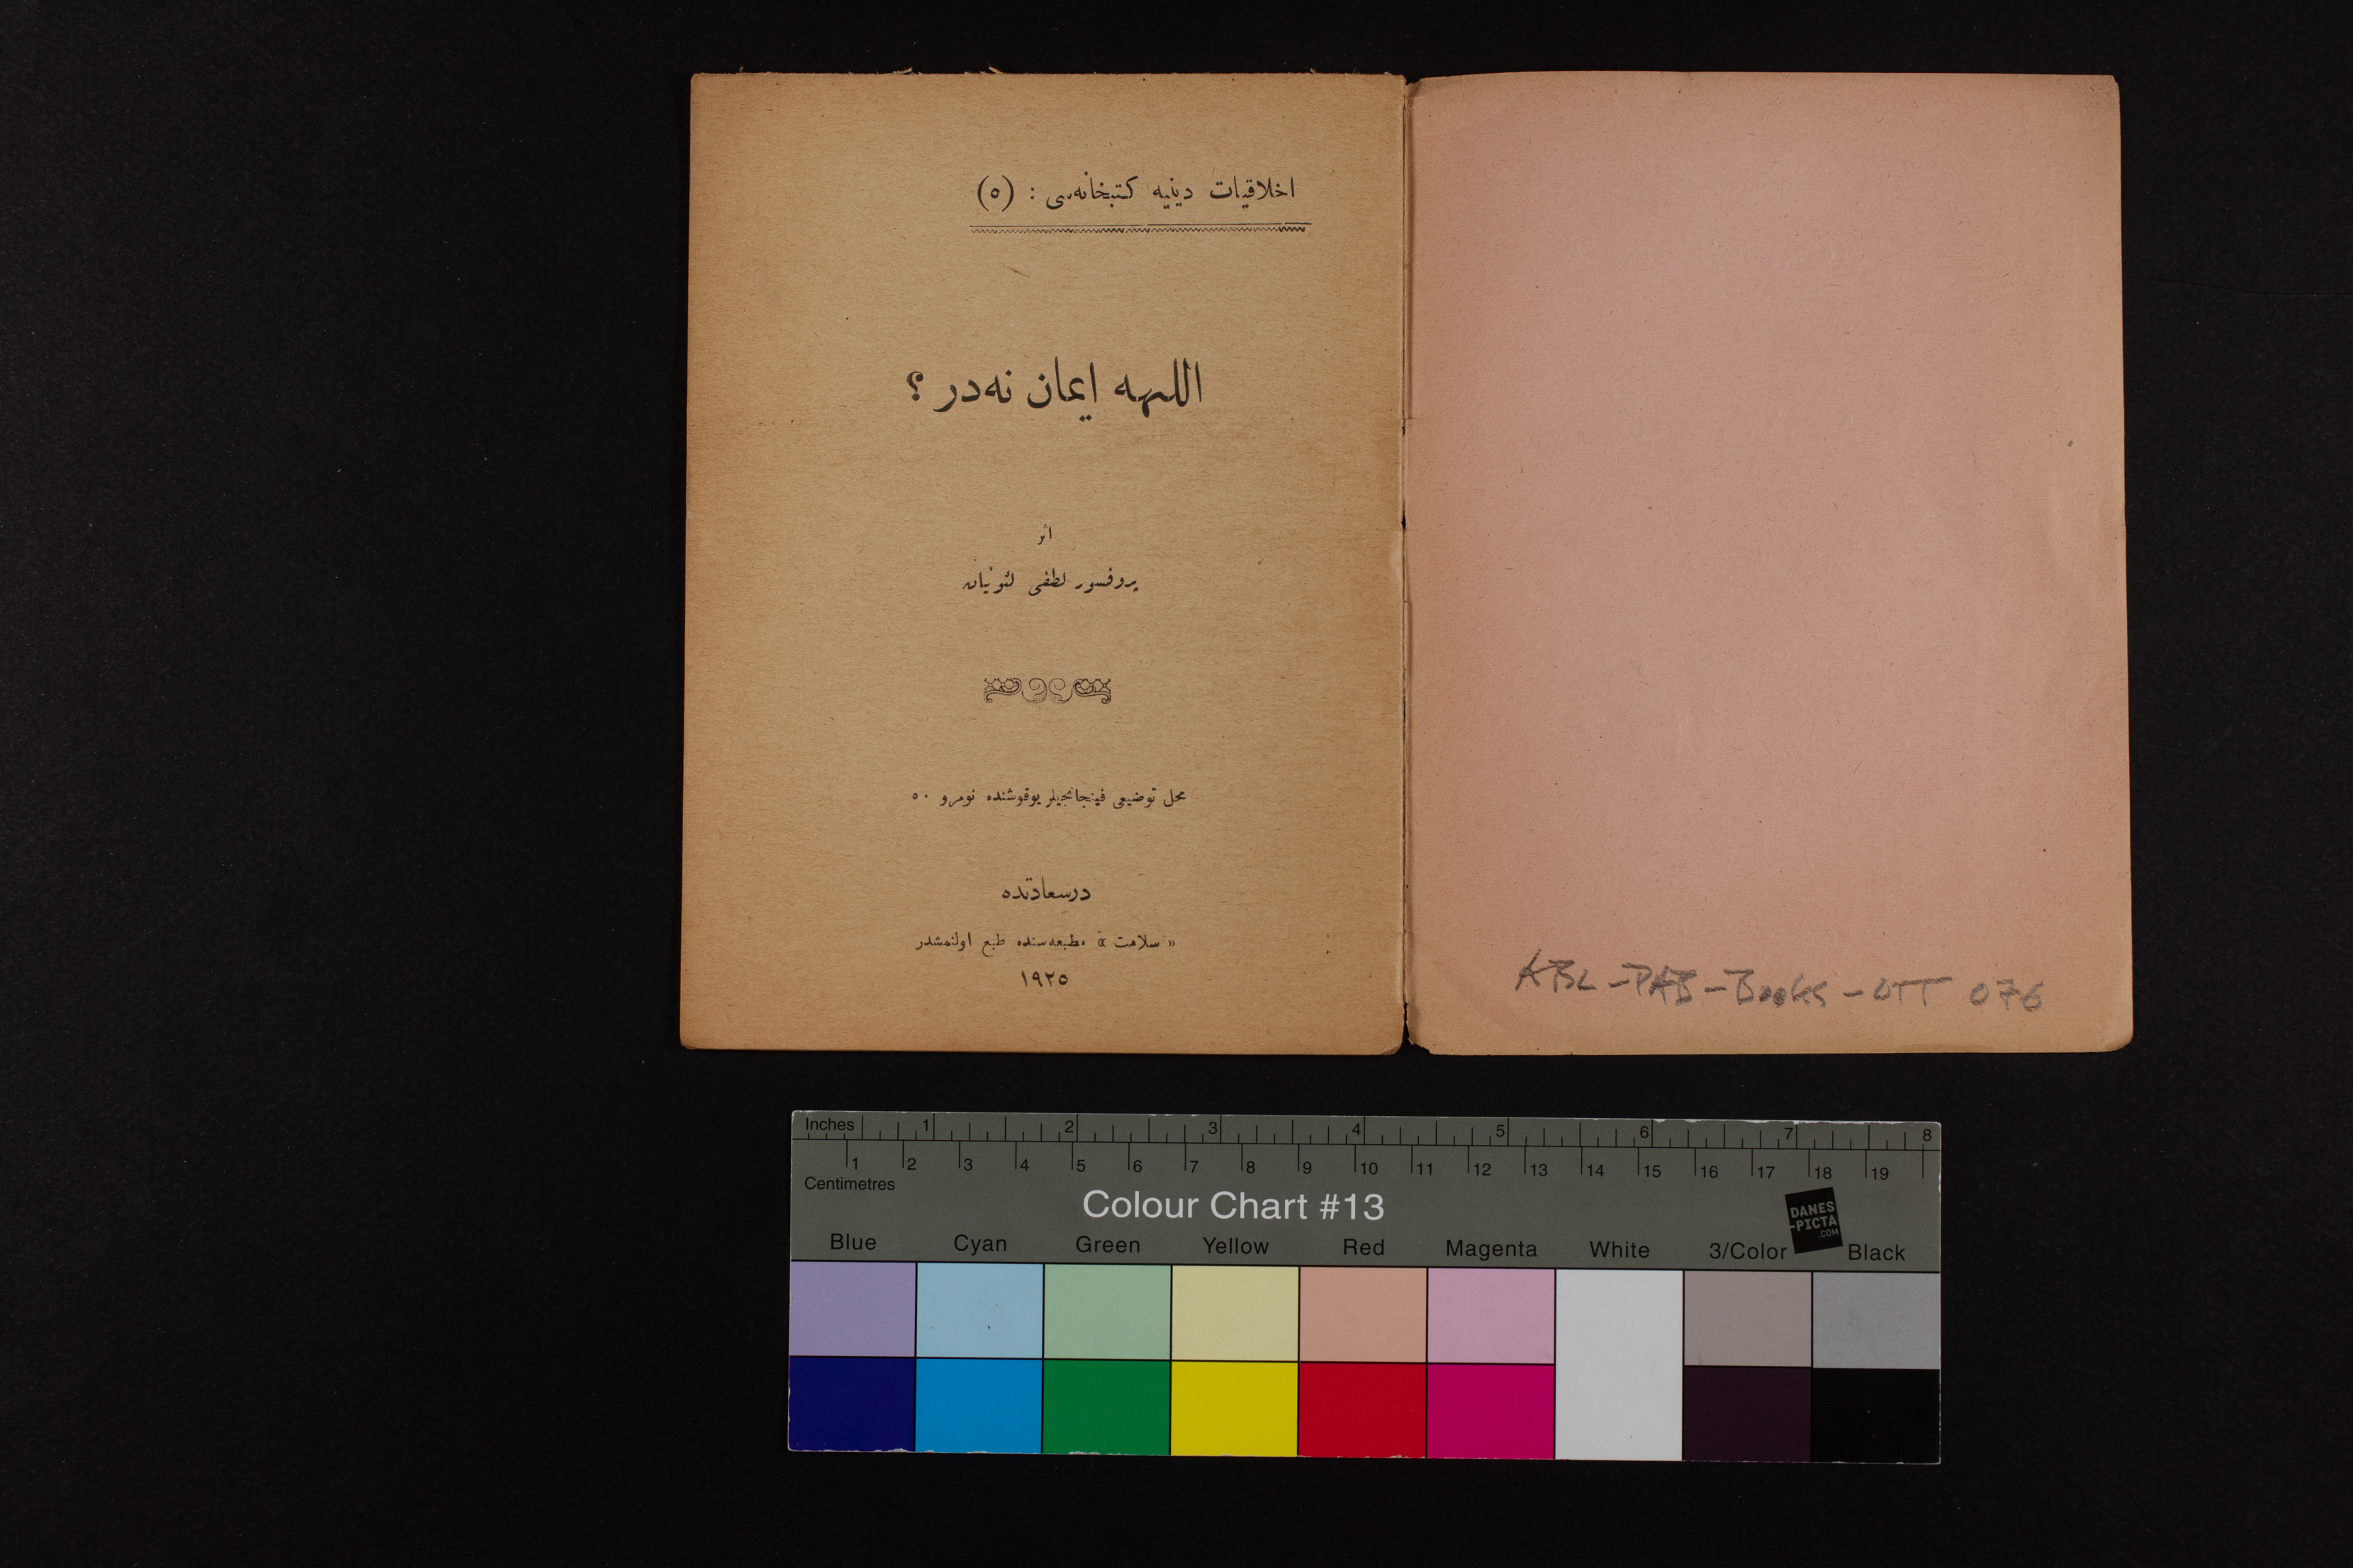 اخلاقیات دینیه کتبخانه‌سی : (٥)
اللهه ایمان نه‌در ؟
اثر
پروفسور لطفی لئونیان
محل توضیعی فینجانجیلر یوقوشنده نومرو ٥٠
درسعادتده
« سلامت » مطبعه‌سنده طبع اولنمشدر
١٩٢٥
ABL-PAB-Books-OTT 076
Inches 1 2 3 4 5 6 7 8
1 2 3 4 5 6 7 8 9 10 11 12 13 14 15 16 17 18 19
Centimetres
Colour Chart #13
DANES
-PICTA
.COM
Blue Cyan Green Yellow Red Magenta White 3/Color Black